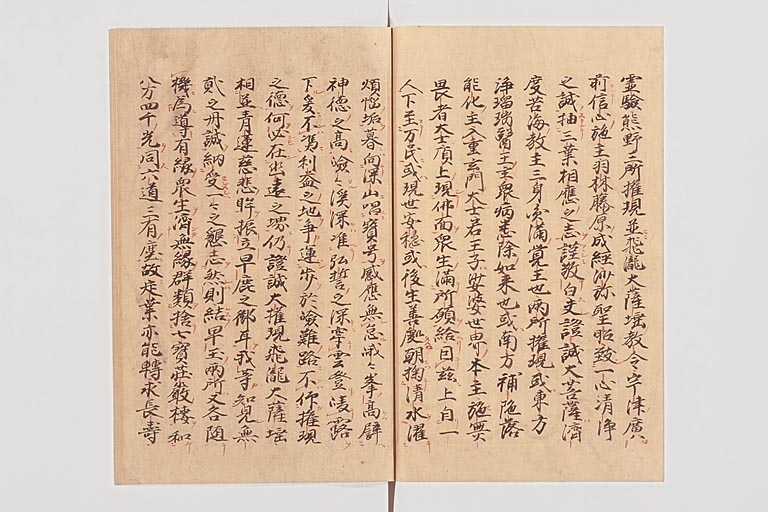 霊驗熊野三所權現並飛瀧大薩埵教令宇津廣
前信心施主羽林藤原成經沙弥聖照致一心清浄
之誠抽三業相應之志謹敬白夫證誠大菩薩濟
度苦海教主三身圓滿覺王也両所權現或東方
浄瑠璃醫王主衆病悉除如来也或南方補陁落
能化主入重玄門大士若王子娑婆世界本主施無
畏者大士頂上現佛面衆生滿所願給因玆上自一
人下至万民或現世安穏或後生善處朝掬清水濯
煩悩垢暮向深山唱寳号感應無怠峨々峯高譬
神德之高嶮々溪深准弘誓之深穿雲登凌露
下爰不馮利益之地争運歩於嶮難路不仰權現
之德何必在幽遠之境仍證誠大權現飛瀧大薩埵
相並青蓮慈悲眸振立早鹿之御耳我等知見無
貳之丹誠納受一々之懇志然則結早玉両所又各随
機為導有縁衆生濟無縁群類捨七寳荘嚴棲和
八万四千光同六道三有塵故定業亦能轉求長壽